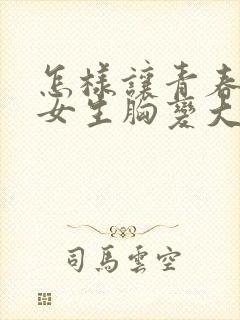 怎樣讓青春
女生胸變大
司馬雲空